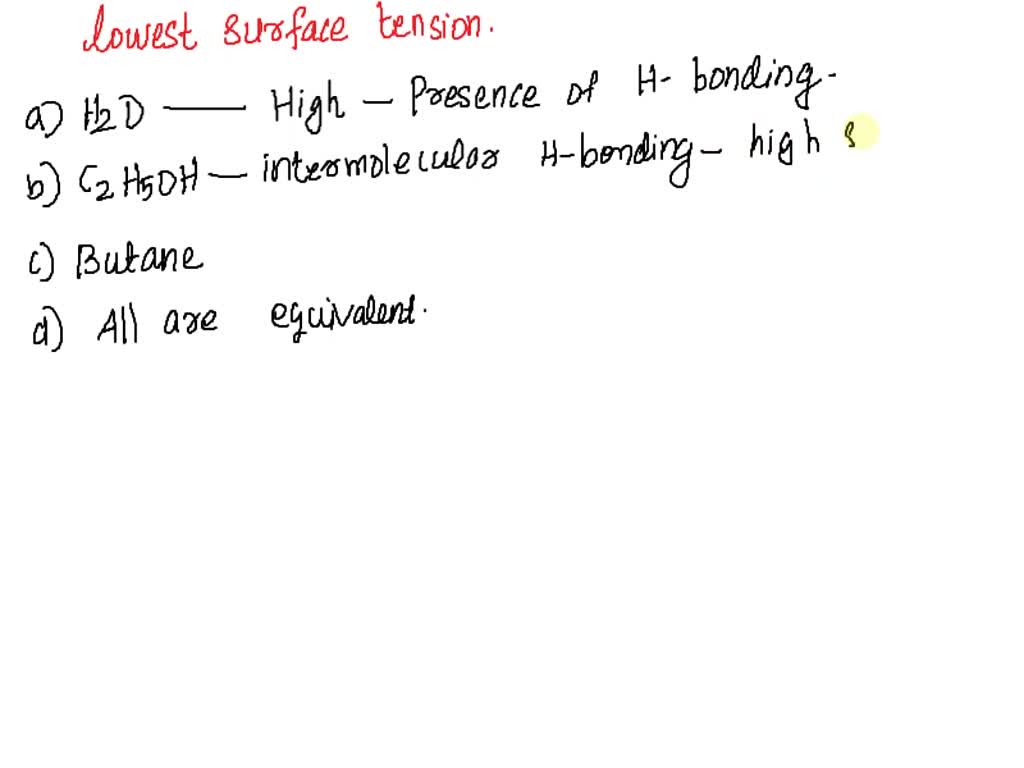 lowest surface tension.
a) H2O — High - Presence of H- bonding-
b) C2H5OH - intermolecular H-bonding- high s
c) Butane
d) All are equivalent.